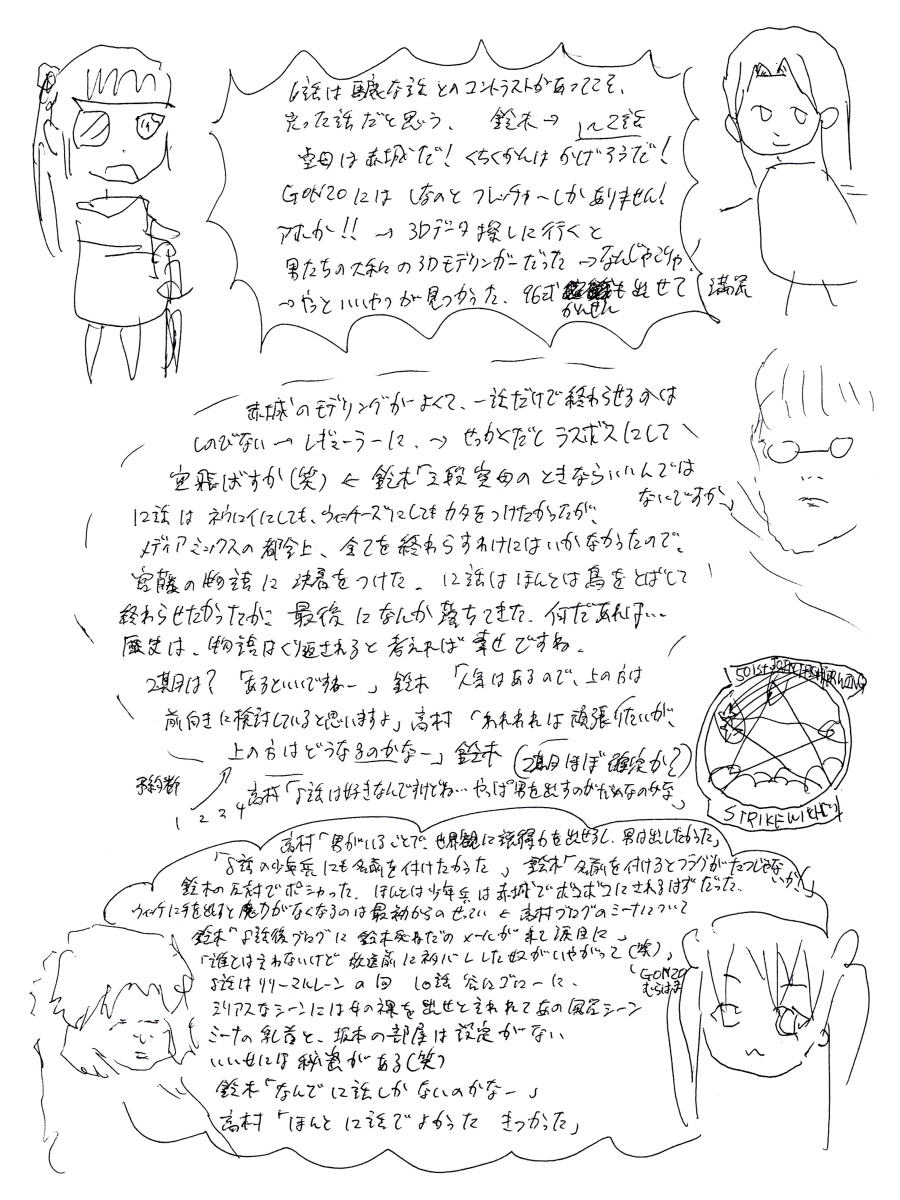 6話は馬鹿な話とのコントラストがあってこそ、
光った話だと思う、 鈴木→ 1〜2話
空母は赤城だ! くちくかんは かげろうだ!
GONZOには しなのと フレッチャーしかありません!
アホか!! → 3Dデータ探しに行くと
男たちの大和の3Dモデリンガーだった →なんじゃこりゃ、
→やっといいやつが見つかった、96式 も出せて 満足
かんせん
赤城のモデリングがよくて、一話だけで終わらせるのは
しのびない→レギュラーに、→ せっかくだと ラスボスにして
空飛ばすか(笑) ← 鈴木「2段空母のときならいいんでは
ないですか」
12話は ネウロイにしても、ウィッチーズにしてもカタをつけたかったが、
メディアミックスの都合上、全てを終わらすわけにはいかなかったので、
宮藤の物語に決着をつけた。 12話はほんとは鳥をとばして
終わらせたかったが、最後になんか落ちてきた、何だあれは…
歴史は、物語はくり返されると考えれば 幸せですね。
2期は? 「あるといいですねー」 鈴木 「人気はあるので、上の方は
前向きに検討していると思いますよ」高村 「われわれは頑張りたいが、
上の方はどうなるのかなー」鈴木 (2期ほぼ確定か?)
予約数
1 2 3 4
高村「8話は好きなんですけどね… やっぱ男を出すのがだめなのかな」
501st JOINT FIGHTER WING
STRIKE WITCHES
高村「男がいることで、世界観に説得力を出せるし、男は出したかった」
「8話の少年兵にも名前を付けたかった」 鈴木「名前を付けるとフラグがたつじゃない
いか」
鈴木の反対でポシャった、ほんとは少年兵は赤城でボコボコにされるはずだった、
ウィッチに手を出すと魔力がなくなるのは最初からのせってい ← 高村ブログのミーナについて
鈴木「8話後ブログに 鈴木死ねだの メールが来て涙目に」
「誰とは言わないけど 放送前にネタバレした奴がいやがって(笑)」
GONZO
むらはま
8話はリリーマルレーンの回 10話
シリアスなシーンには女の裸を出せと言われてあの風呂シーン
ミーナの乳首と、坂本の部屋は設定がない
いい女には秘密がある(笑)
鈴木「なんで12話しかないのかなー」
高村「ほんと12話でよかった きつかった」